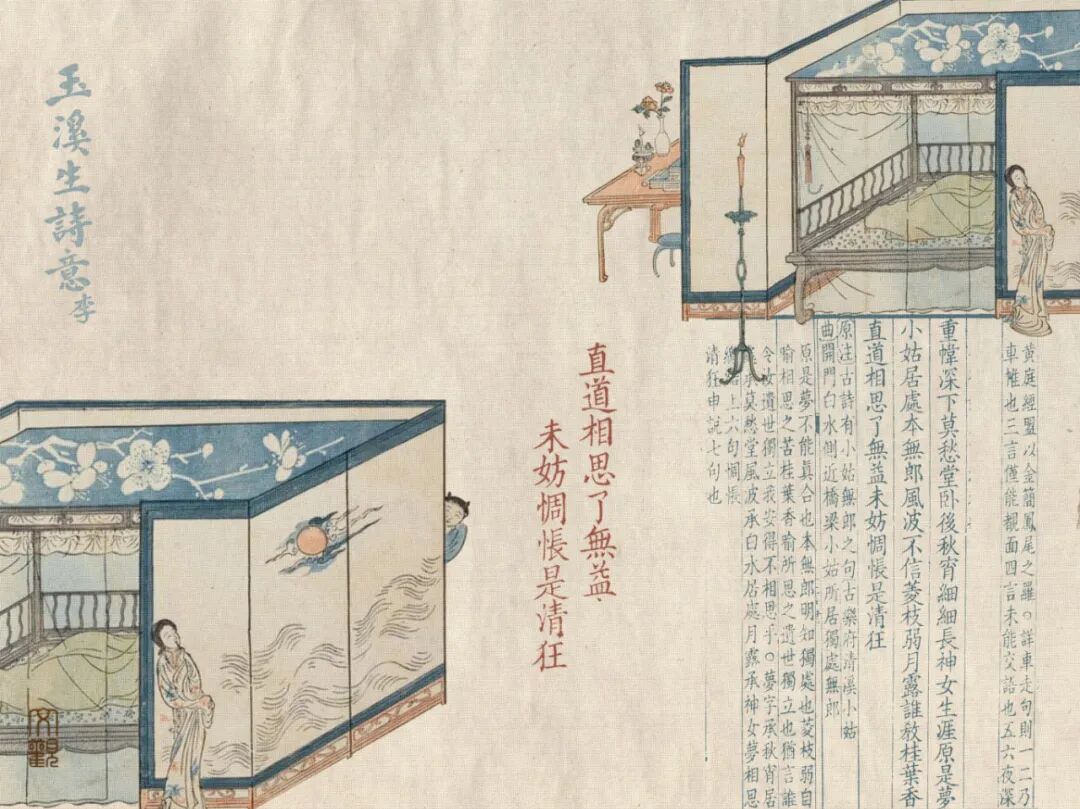 黄庭經盟以金簡鳳尾之羅○詳車走句則一二乃
車帷也三言僅能覿面四言未能交語也五六夜深
重幃深下莫愁堂卧後秋宵細細長神女生涯原是夢
小姑居處本無郎風波不信菱枝弱月露誰教桂葉香
直道相思了無益未妨惆悵是清狂
原注古詩有小姑無郎之句古樂府清溪小姑
曲開門白水側近橋梁小姑所居獨處無郎
原是夢不能真合也本無郎明知獨處也菱枝弱自
喻相思之苦桂葉香喻所思之遺世獨立也猶言誰
令汝遺世獨立我安得不相思乎○夢字承秋宵居
承莫愁堂風波承白水居處月露承神女夢相思
上六句惆悵
清狂申說七句也
直道相思了無益
未妨惆悵是清狂
玉溪生詩意李
文觀